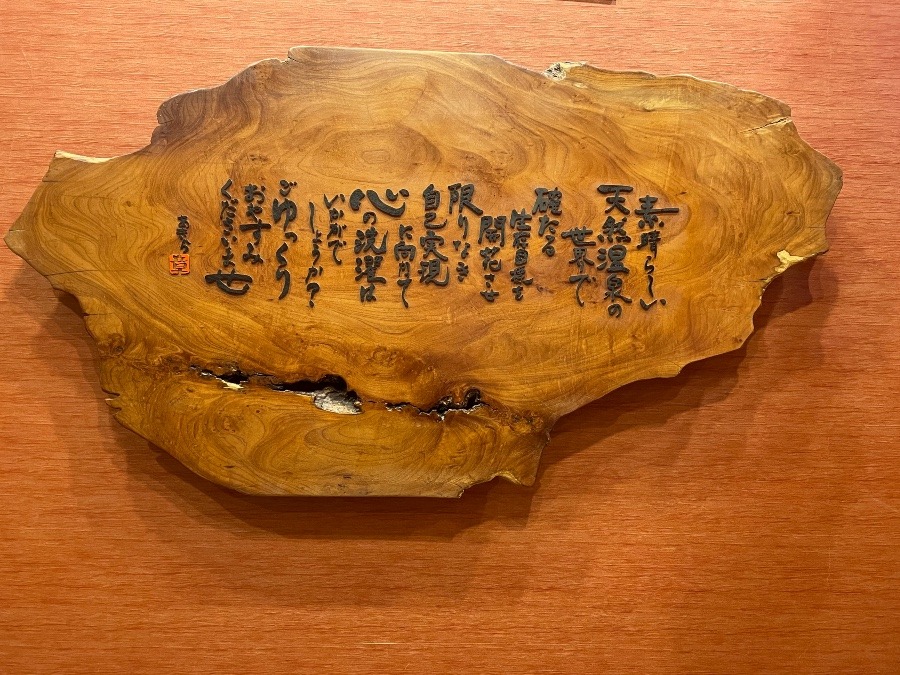 素晴らしい
天然温泉の
世界で
確たる
を
開花
限りなき
自己実現
に向けて
心の洗濯は
いかがで
しょうか?
ごゆっくり
おやすみ
くださいませ